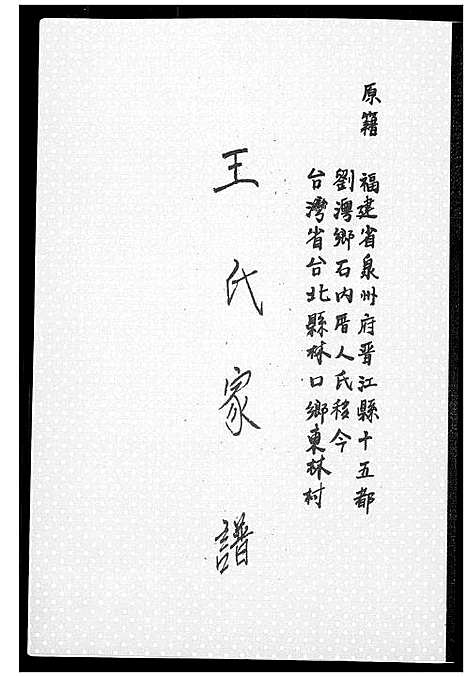 原籍
福建省泉州府晋江縣十五都
劉灣鄉石内厝人氏移今
台灣省台北縣林口鄉東林村
王氏家譜